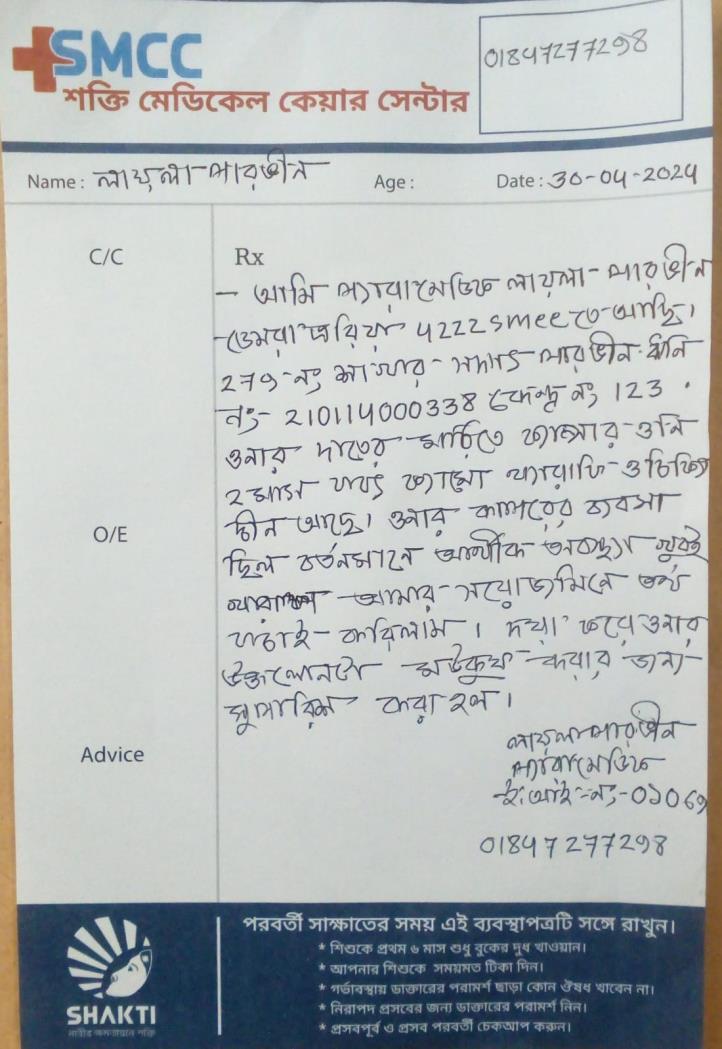 SMCC
শক্তি মেডিকেল কেয়ার সেন্টার
01847277298
Name : লায়লা পারভীন Age : Date : 30-04-2024
C/C
Rx
- আমি প্যারামেডিক লায়লা-পারভীন
ডেমরা এরিয়া 4222 smcc তে আছি।
279-নং শাখার-সদস্য পারভীন
নং- 210114000338 কেন্দ্র নং 123.
ওনার দাতের মাড়িতে ক্যান্সার-ওনি
2 মাস যাবৎ ক্যামো থ্যারাফি-ও চিকিৎসা
দ্বীন আছে। ওনার কাপরের ব্যবসা
O/E
ছিল বর্তনমানে আর্থীক অবস্থা খুবই
খারাপ আমার সরোজমিনে তথ্য
যাচাই-করিলাম। দয়া করে ওনার
উক্ত লোনটা মউকুফ-করার জন্য
সুপারিশ করা হল।
Advice
লায়লা-পারভীন
প্যারামেডিক
ই:আই:-নং-01069
01847277298
SHAKTI
নারীর ক্ষমতায়নে শক্তি
পরবর্তী সাক্ষাতের সময় এই ব্যবস্থাপত্রটি সঙ্গে রাখুন।
* শিশুকে প্রথম ৬ মাস শুধু বুকের দুধ খাওয়ান।
* আপনার শিশুকে সময়মত টিকা দিন।
* গর্ভাবস্থায় ডাক্তারের পরামর্শ ছাড়া কোন ঔষধ খাবেন না।
* নিরাপদ প্রসবের জন্য ডাক্তারের পরামর্শ নিন।
* প্রসবপূর্ব ও প্রসব পরবর্তী চেকআপ করুন।